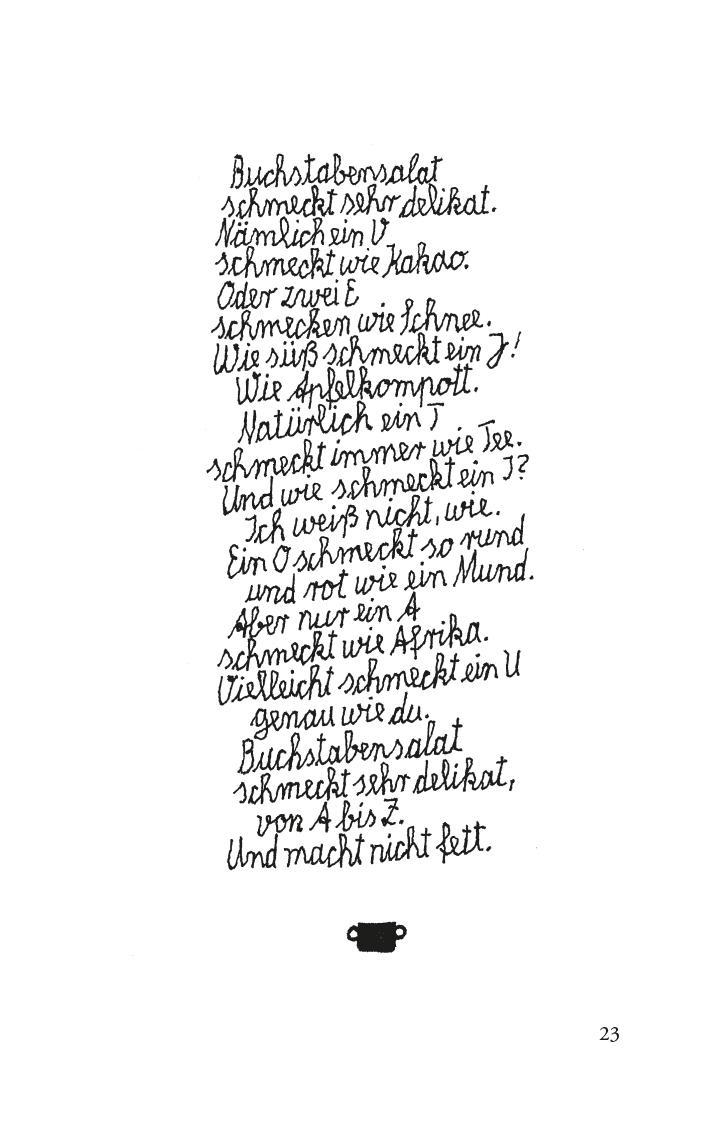 Buchstabensalat
schmeckt sehr delikat.
Nämlich ein V
schmeckt wie Kakao.
Oder zwei E
schmecken wie Schnee.
Wie süß schmeckt ein J!
Wie Apfelkompott.
Natürlich ein T
schmeckt immer wie Tee.
Und wie schmeckt ein I?
Ich weiß nicht, wie.
Ein O schmeckt so rund
und rot wie ein Mund.
Aber nur ein A
schmeckt wie Afrika.
Vielleicht schmeckt ein U
genau wie du.
Buchstabensalat
schmeckt sehr delikat,
von A bis Z.
Und macht nicht fett.
23